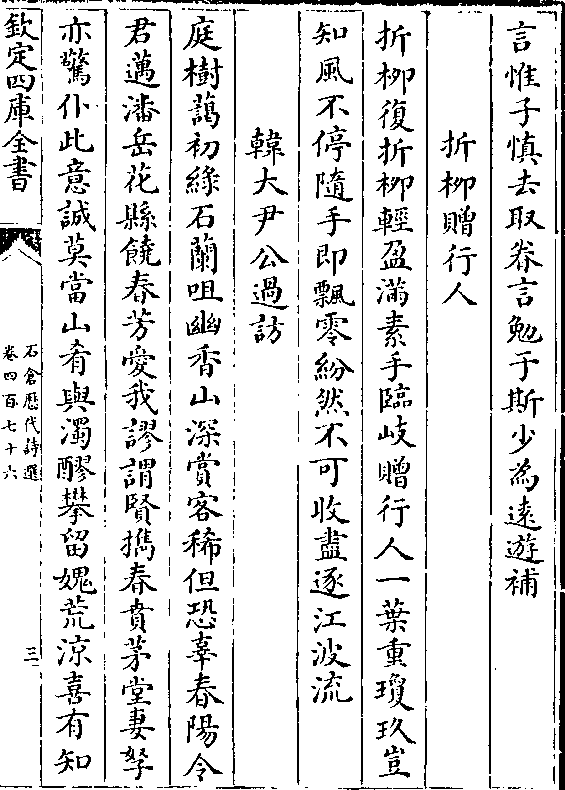 言惟子慎去取眷言勉于斯少為遠遊補
折栁贈行人
折栁復折栁輕盈滿素手臨岐贈行人一葉重瓊玖豈
知風不停隨手即飄零紛然不可收盡逐江波流
韓大尹公過訪
庭樹藹初綠石蘭咀幽香山深賞客稀但恐辜春陽令
君邁潘岳花縣饒春芳愛我謬謂賢擕春賁茅堂妻孥
亦驚仆此意誠莫當山肴與濁醪攀留媿荒涼喜有知
欽定四庫全書
石倉歷代詩選
卷四百七十六
三